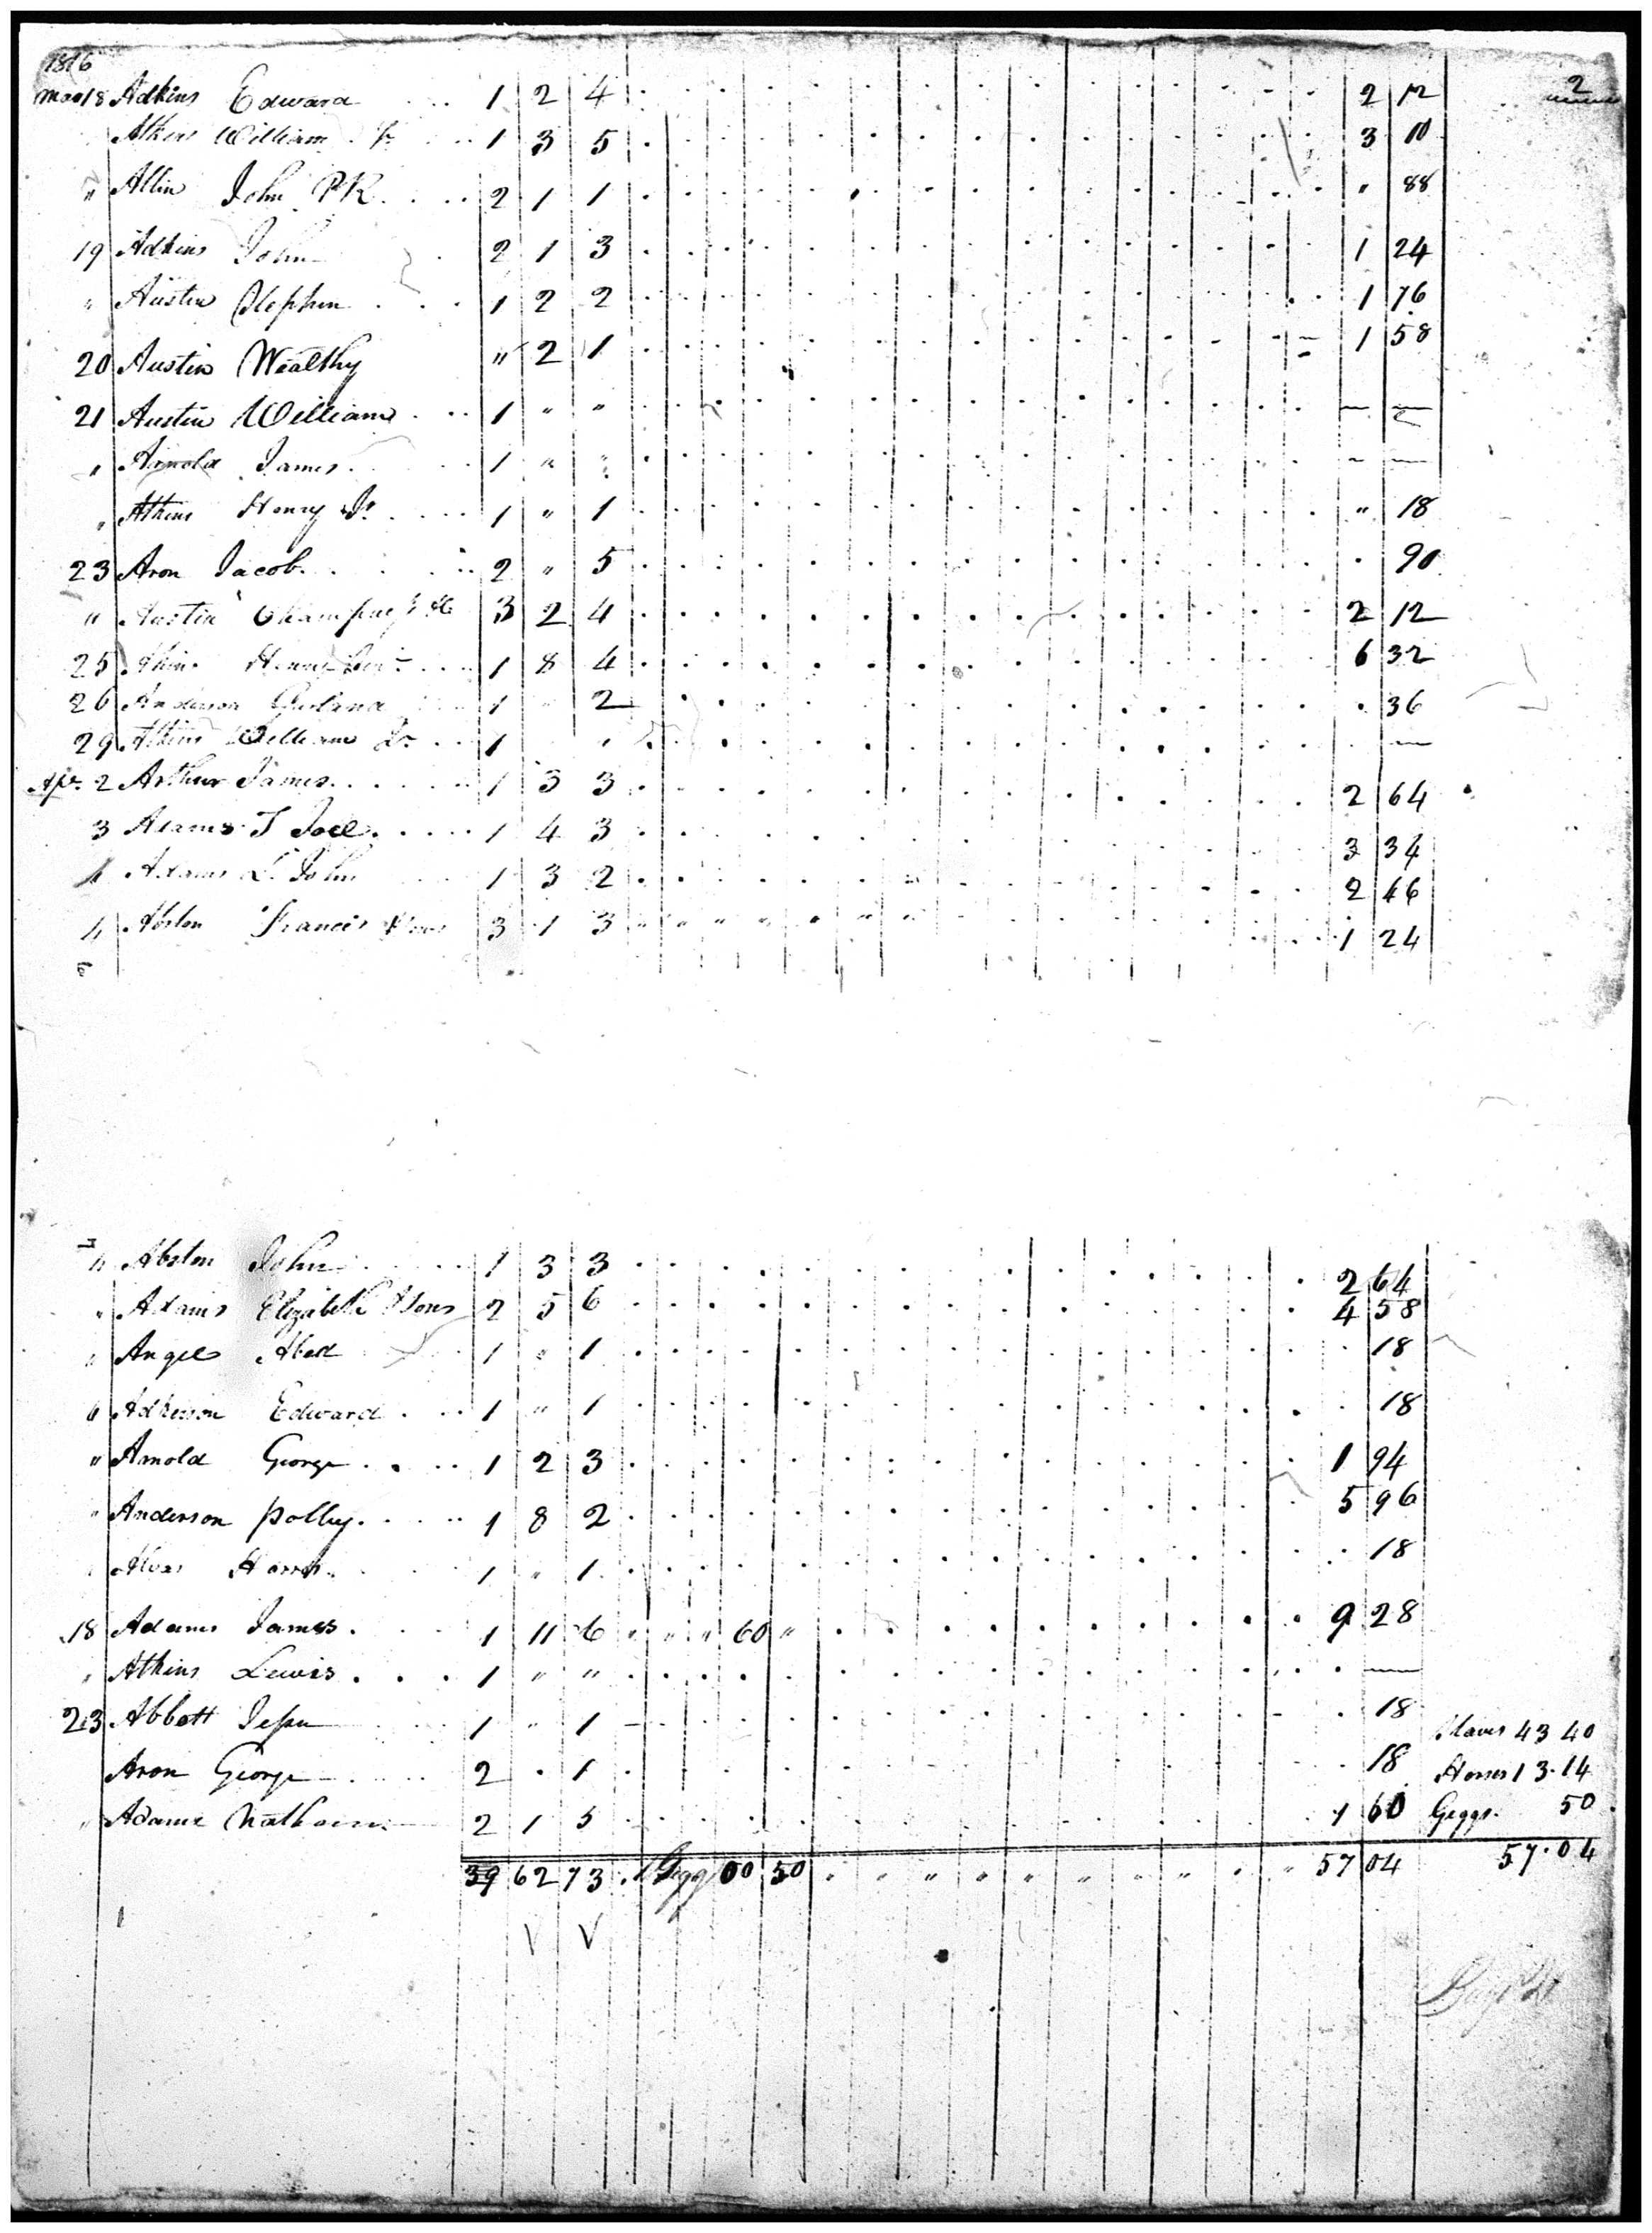 1816 2
Mar 18 Adkins Edward 1 2 4 2 12
Atkins William 1 3 5 3 10
" Allin John P K 2 1 1 " 88
19 Adkins John 2 1 3 1 24
" Austin Stephen 1 2 2 1 76
20 Austin Wealthy " 2 1 1 58
21 Austin William 1 " " — —
" Arnold James 1 " " — —
" Atkins Henry Jr 1 " 1 " 18
23 Aron Jacob 2 " 5 . 90
" Austin Champ 3 2 4 2 12
25 1 8 4 6 32
26 Anderson 1 " 2 . 36
29 Atkins William Jr 1 " —
Apr. 2 Arthur James 1 3 3 2 64
3 Adams T Joel 1 4 3 3 34
4 Adams L John 1 3 2 2 46
4 Abston Francis 3 1 3 1 24
4 Abston John 1 3 3 2 64
" Adams Elizabeth & Sons 2 5 6 4 58
" Angel Abed 1 " 1 . 18
6 Adkerson Edward 1 " 1 . 18
" Arnold George 1 2 3 1 94
" Anderson Polley 1 8 2 5 96
1 " 1 . 18
18 Adams James 1 11 6 " " " 60 " 9 28
" Atkins Lewis 1 " " . —
23 Abbott Jesse 1 " 1 . 18
Slaves 43 40
Aron George 2 . 1 . 18 Horses 13.14
" Adams Nathan 2 1 5 1 60 Giggs. 50
39 62 73 1 Gigg 60 50 57 04 57.04